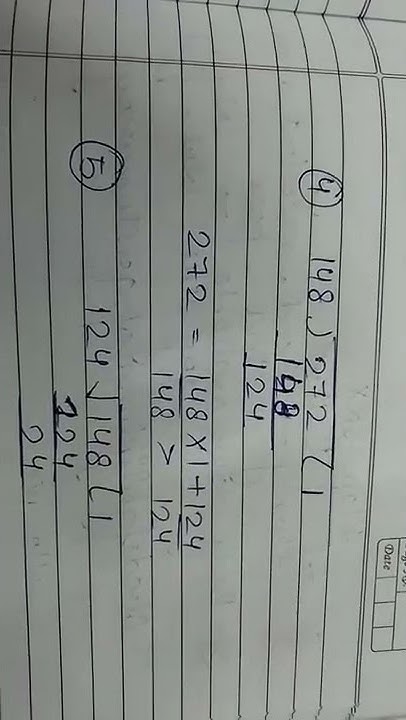 Date
④ 148 ) 272 ( 1
148
124
272 = 148 × 1 + 124
148 > 124
⑤ 124 ) 148 ( 1
124
24